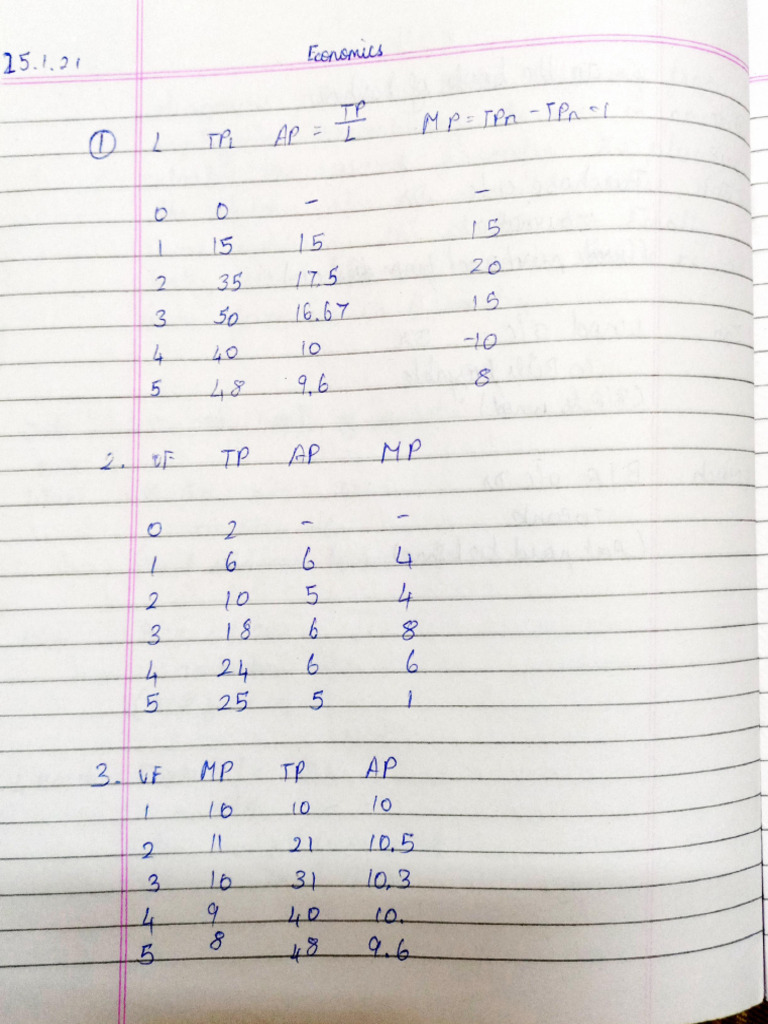 25.1.21 Economics
① L TPL AP = TP/L MP = TPn - TPn-1
0 0 - -
1 15 15 15
2 35 17.5 20
3 50 16.67 15
4 40 10 -10
5 48 9.6 8
2. VF TP AP MP
0 2 - -
1 6 6 4
2 10 5 4
3 18 6 8
4 24 6 6
5 25 5 1
3. VF MP TP AP
1 10 10 10
2 11 21 10.5
3 10 31 10.3
4 9 40 10.
5 8 48 9.6